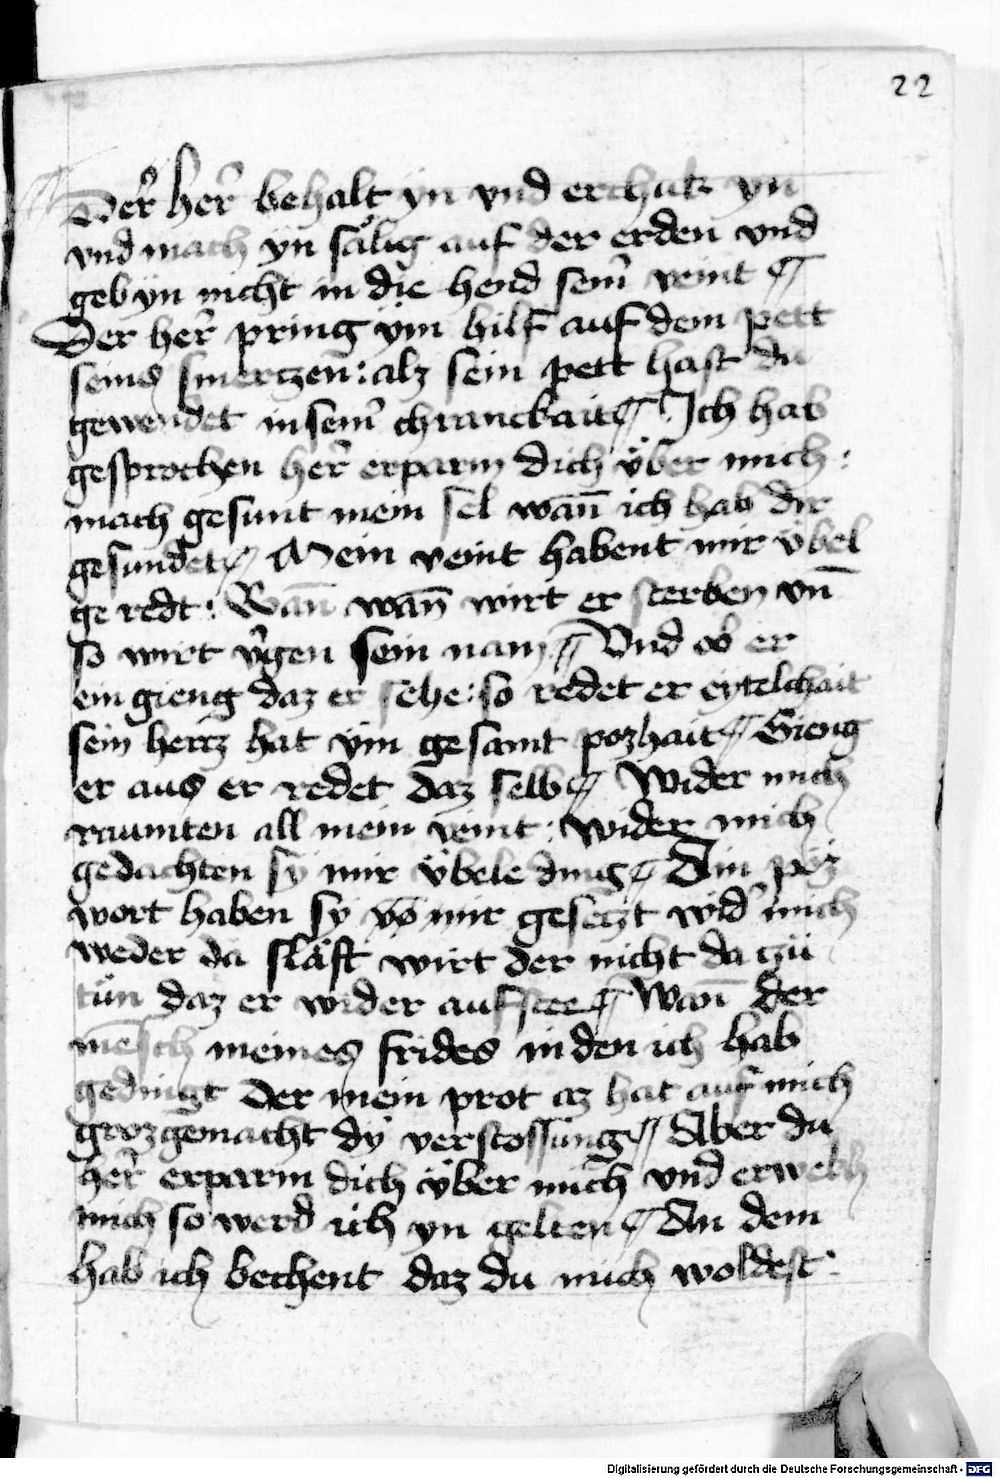 22
Der̃ her̃ behalt yn vnd erchuk yn
vnd mach yn sålig auf der erden vnd
geb yn nicht in die hend sein̉ veint ¶
Der her̃ pring ym hilf auf dem pett
seins smerczen̄ : alz sein pett hast du
gewendet in sein̉ chranckait ¶ Ich hab
gesprochen her̃ erparm dich v̈ber mich :
mach gesunt mein sel wan̄ ich hab dir
gesundet ¶ Mein veint habent mir v̈bel
ge redt : Wan̄ wirt er sterben vn̄
so wirt v̉gen sein nam ¶ Vnd ob er
ein gieng daz er sehe : so redet er eytelchait
sein hercz hat ym gesamt pozhait ¶ Gieng
er aus er redet daz selb ¶ Wider mich
raumten all mein veint : wider mich
gedachten sy mir v̈bele ding ¶ Ain pöz
wort haben sy vō mir geseczt wid̉ mich
weder da slåft wirt der nicht da czü
tün daz er wider aufstee ¶ Wan̄ der
mēsch meines frides in den ich hab
gedingt der mein prot az hat auf mich
groz gemacht dy verstossung ¶ Aber du
her̃ erparm dich v̈ber mich vnd erwekh
mich so werd ich yn gelten ¶ An dem
hab ich bechent daz du mich woldest :
Digitalisierung gefördert durch die Deutsche Forschungsgemeinschaft - DFG